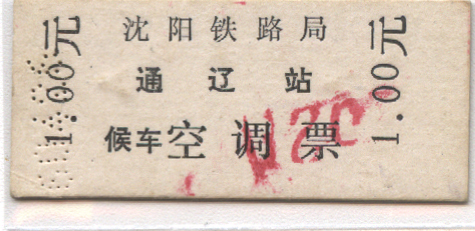 沈阳铁路局
通辽站
候车空调票
1.00元
1.00元